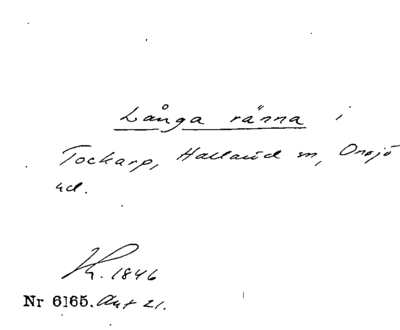 Långa ränna i
Tockarp, Halland sn, Onsjö
hd.
K. 1846
Nr 6165. Ant 21.